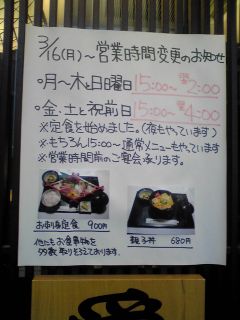 3/16(月)～営業時間変更のお知らせ
・月～木と日曜日15:00～翌2:00
・金・土と祝前日15:00～翌4:00
※定食を始めました。(夜もやっています)
※もちろん15:00～通常メニューもやっています
※営業時間前のご宴会承ります。
お刺身定食 900円
親子丼 680円
他にもお食事物を
多数取りそろえております。